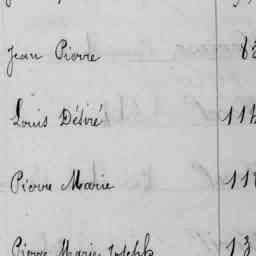 Jean Pierre
Louis Désiré
Pierre Marie
Pierre Marie Joseph 13